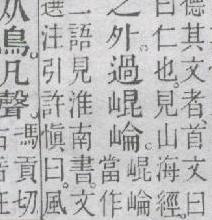 德其文者首文曰
曰仁也。見山海經。
之外。過崐崘。
崐崘
當作
二語見淮南書。文
選注引許慎曰。風
从鳥。凡聲。
馮貢切
古音在